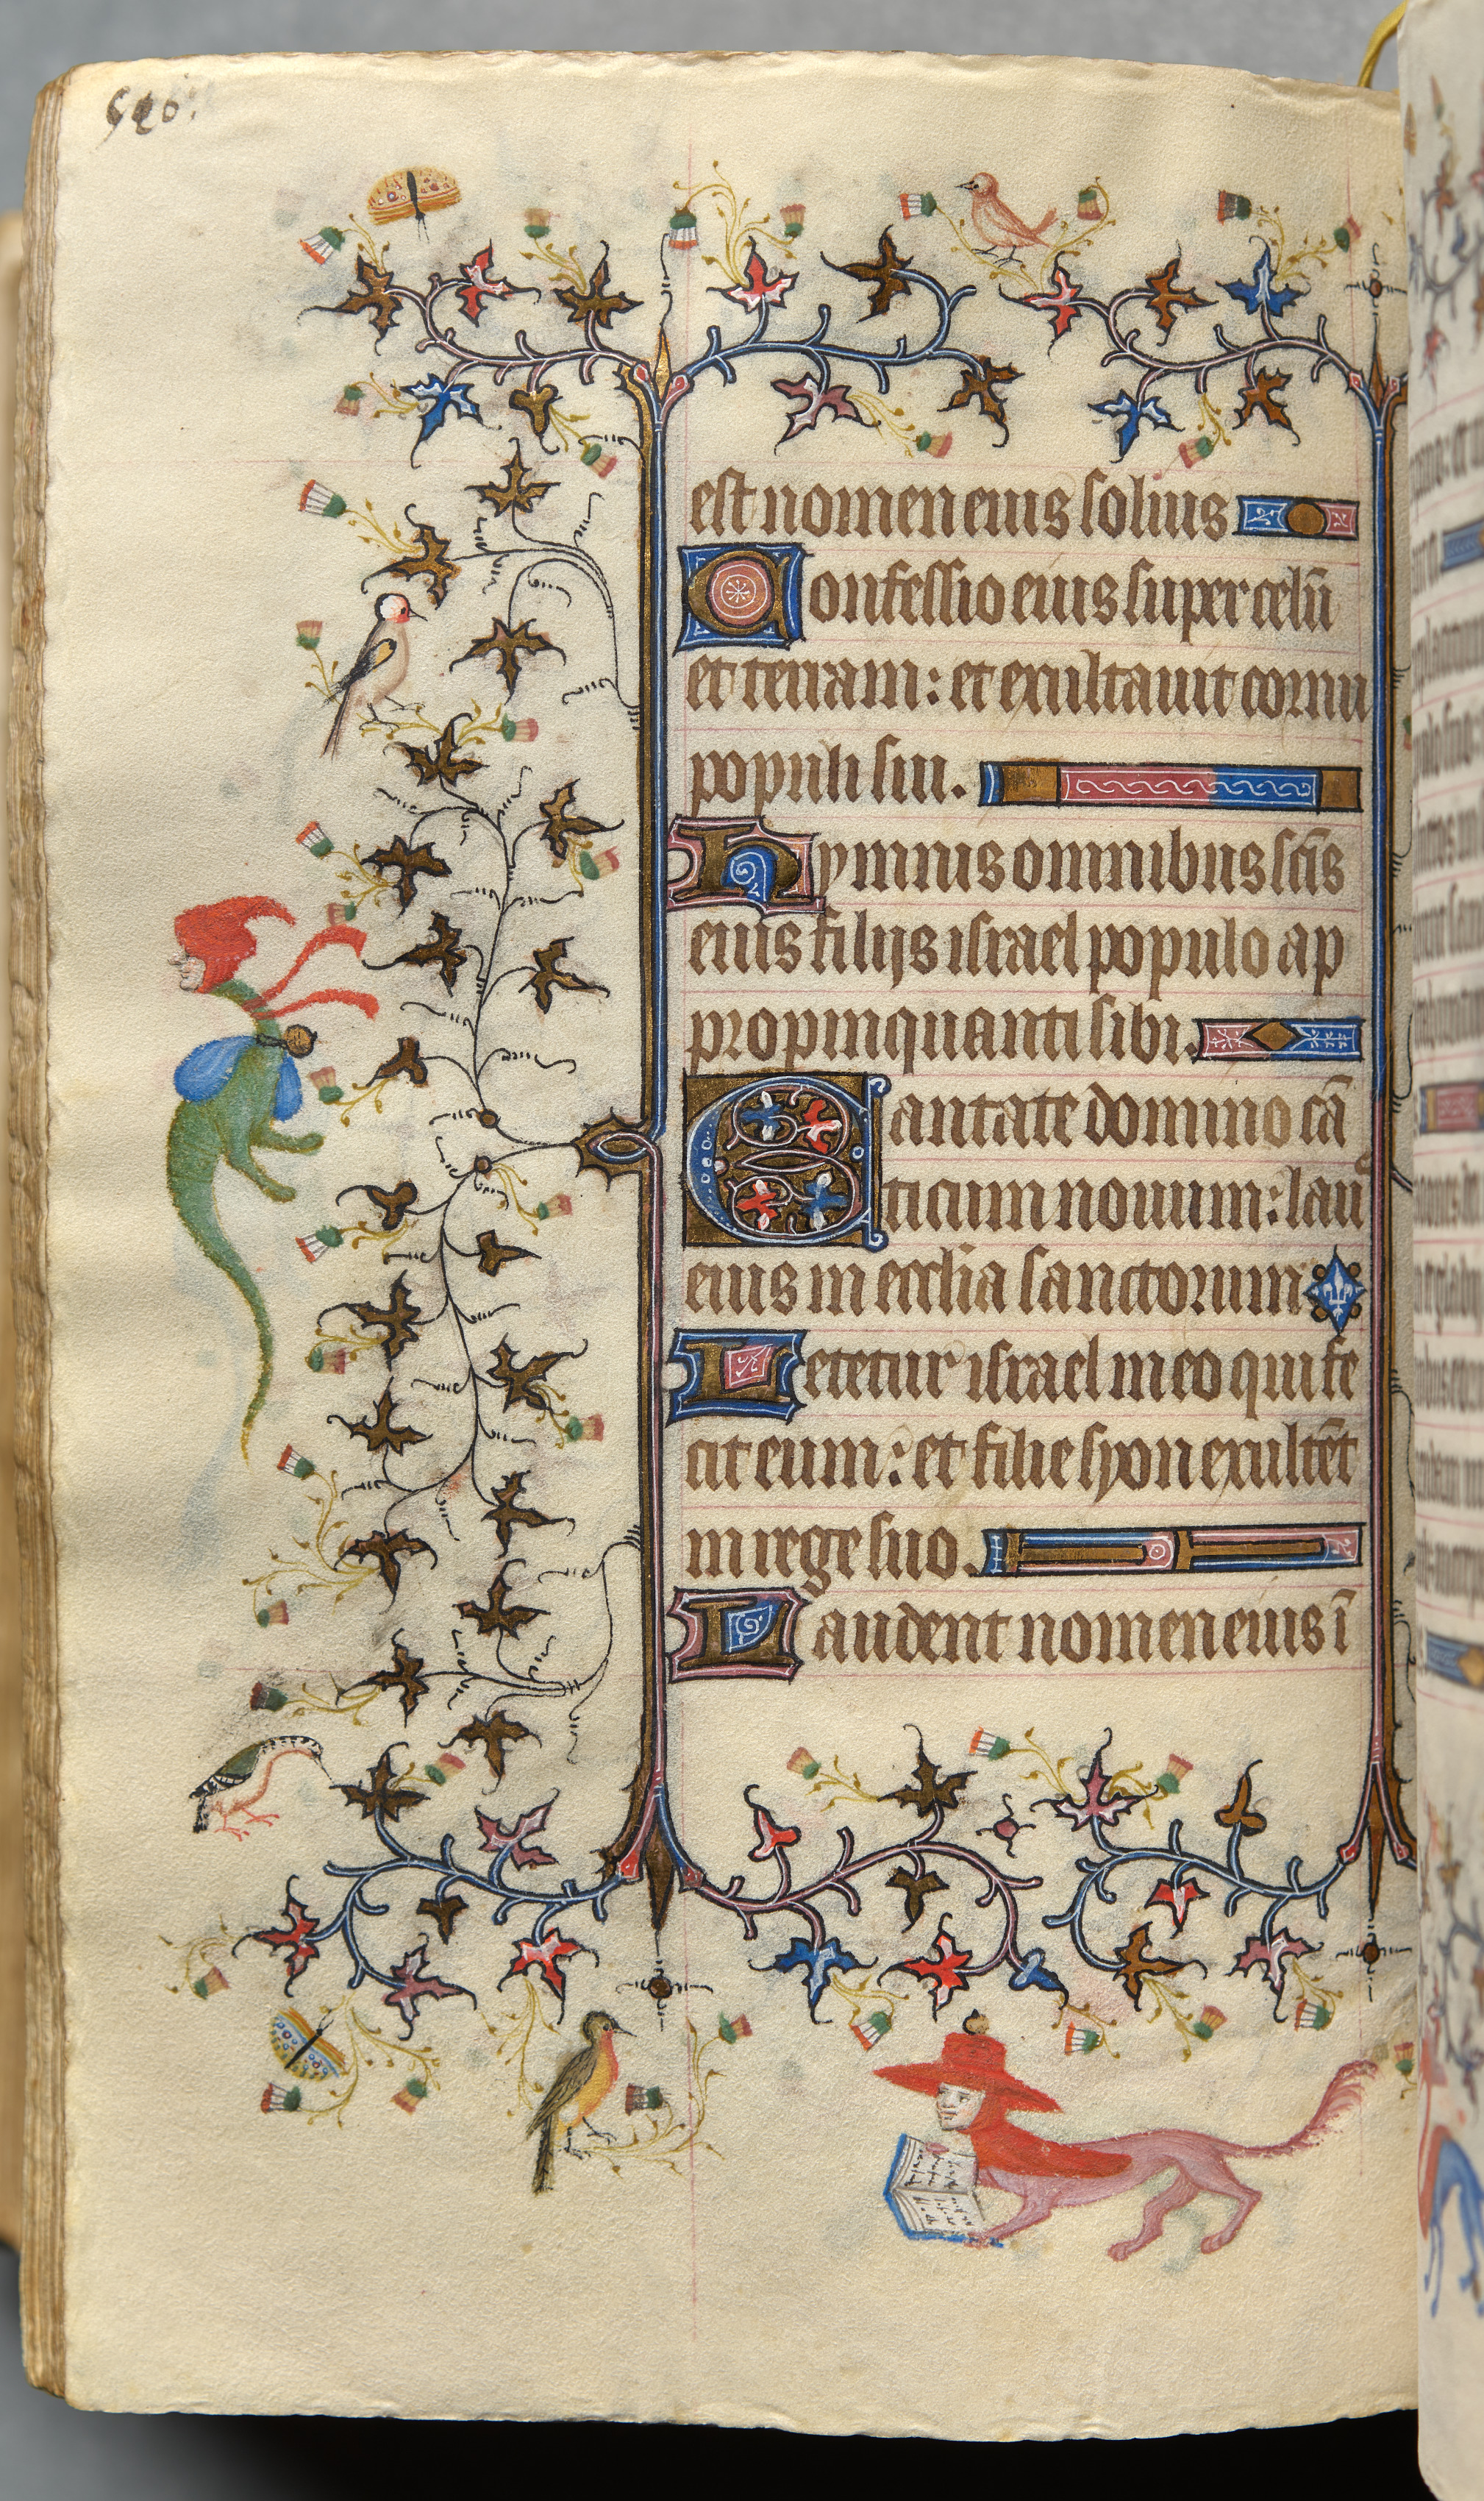 est nomen eius solius
Confessio eius super celū
et terram: et exultauit cornu
populi sui.
Hymnis omnibus scīs
eius filijs israel populo ap
propinquanti sibi.
Cantate domino cā
ticum nouum: lau
eius in ecclīa sanctorum
Letetur israel in eo qui fe
cit eum: et filie syon exultēt
in rege suo.
Laudent nomen eius ī